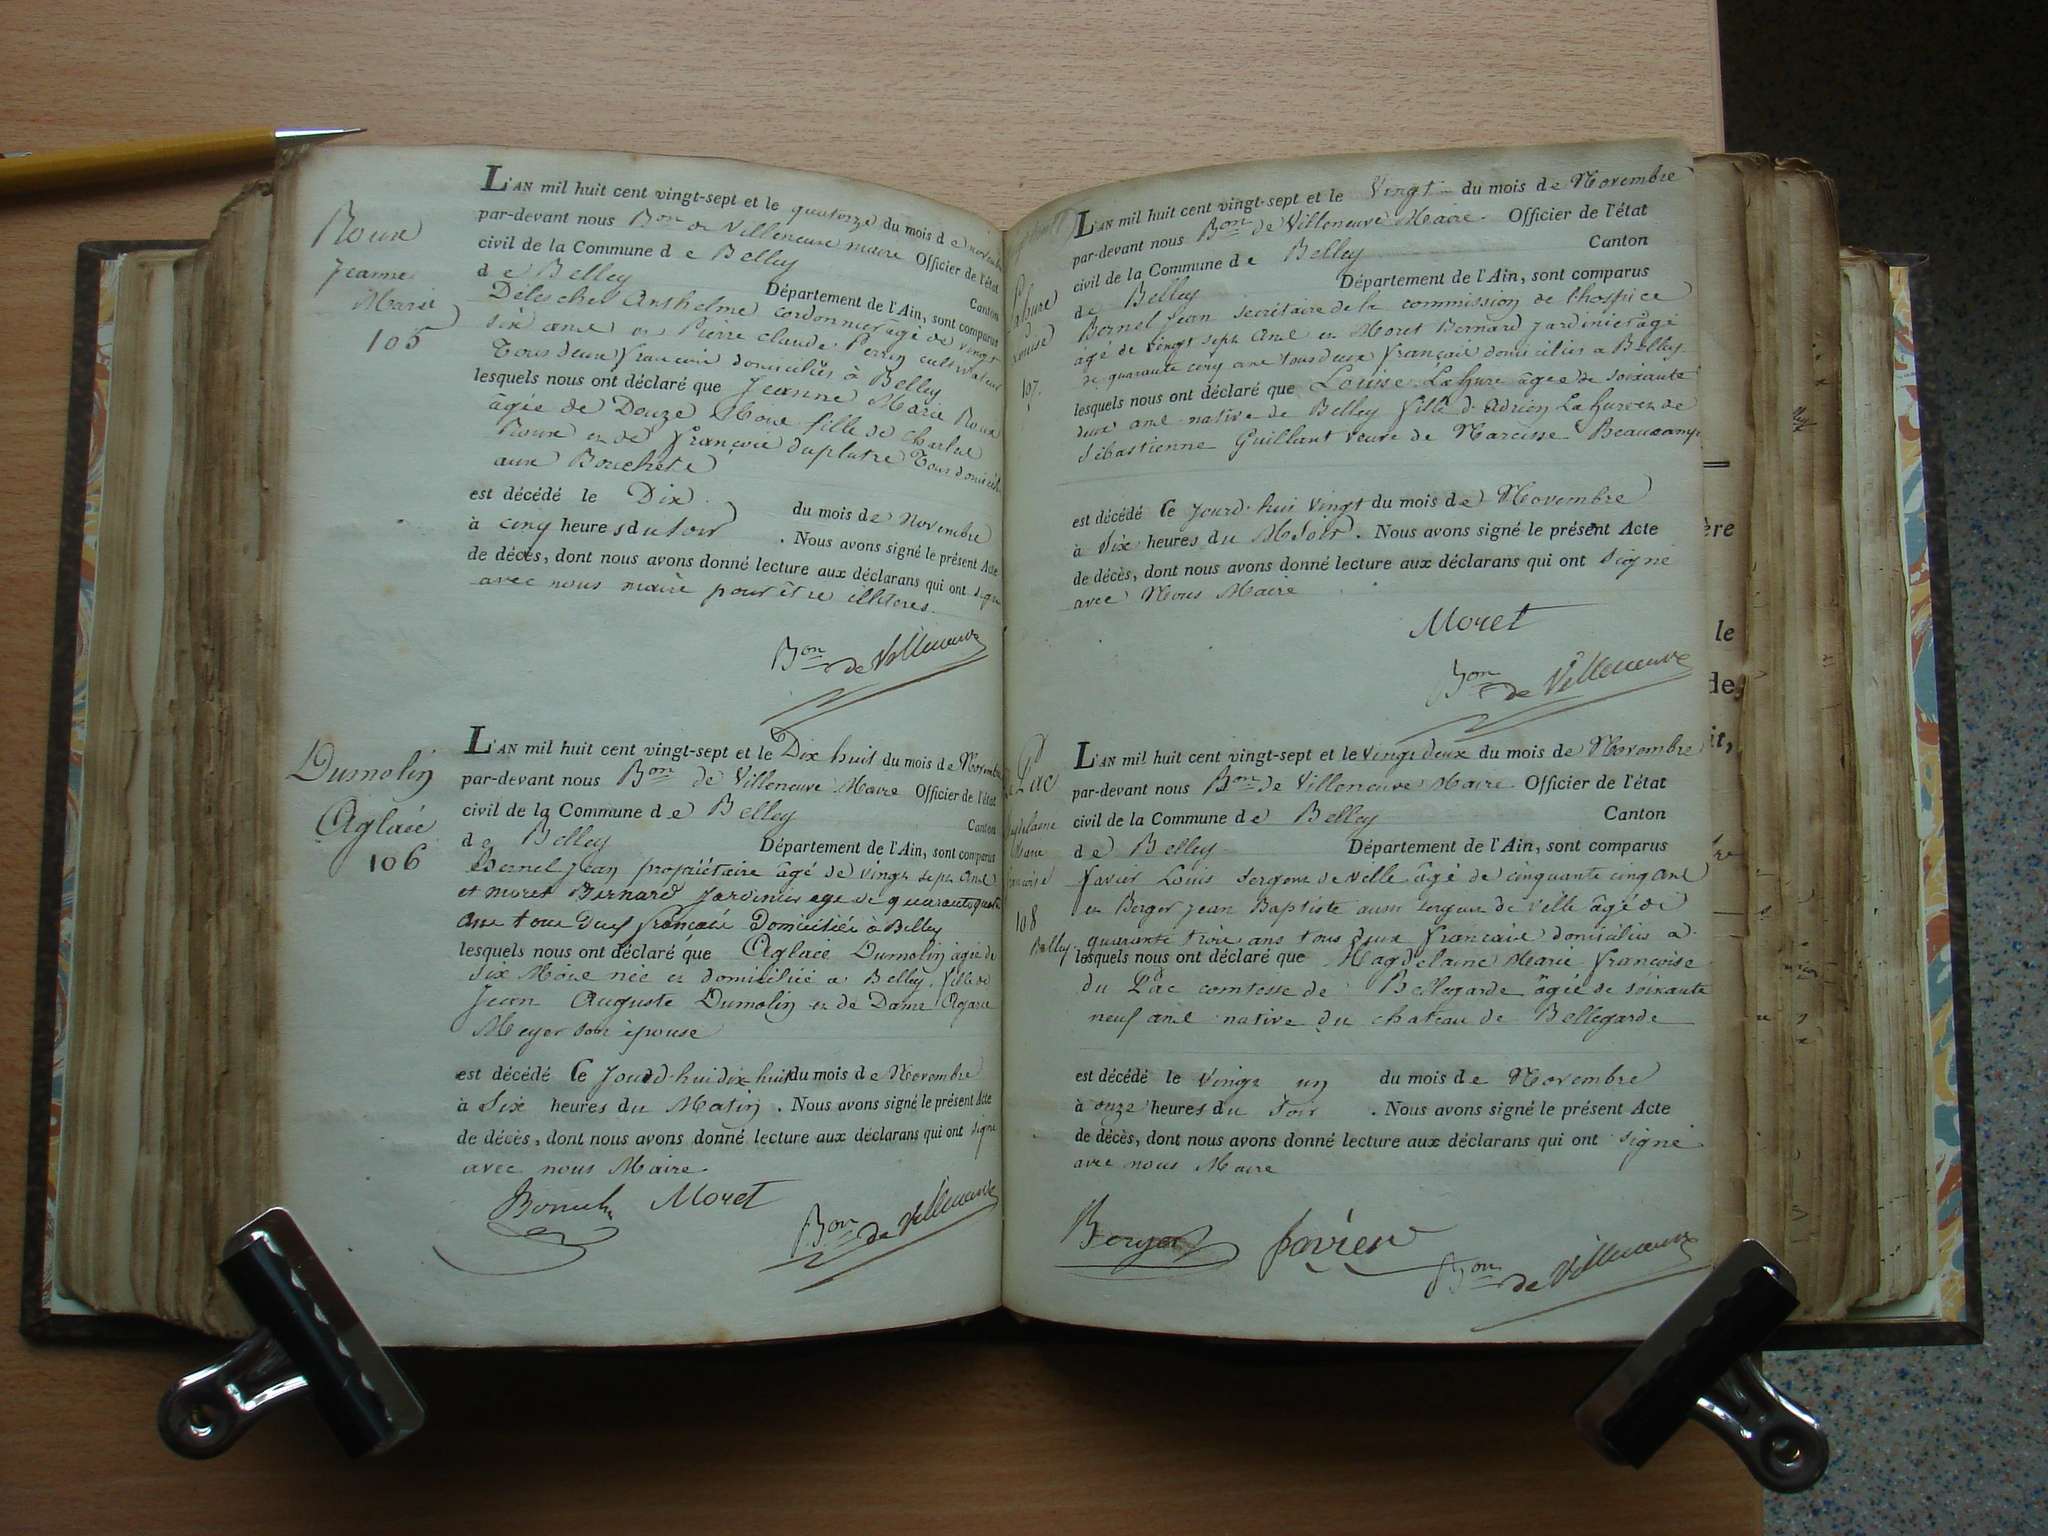 Roux
Jeanne
Marie
105
L'AN mil huit cent vingt-sept et le quatorze du mois de novembre
par-devant nous Bon de Villeneuve maire Officier de l'état
civil de la Commune de Belley Canton
de Belley Département de l'Ain, sont comparus
Anthelme cordonnier agé de vingt
six ans et Pierre claude Perrin cultivateur
Tous deux francais domiciliés à Belley
lesquels nous ont déclaré que Jeanne Marie Roux
âgée de Douze Mois fille de charles
Roux et de françoise duplatre Tous domicil
aux Bouchets
est décédé le Dix du mois de Novembre
à cinq heures du soir . Nous avons signé le présent Acte
de décès, dont nous avons donné lecture aux déclarans qui ont signé
avec nous maire pour être illiteres
Bon de Villeneuve
Dumolin
Aglaée
106
L'AN mil huit cent vingt-sept et le Dix huit du mois de Novembre
par-devant nous Bon de Villeneuve Maire Officier de l'état
civil de la Commune de Belley Canton
de Belley Département de l'Ain, sont comparus
Bernel Jean propriétaire âgé de vingt sept ans
et moret Bernard Jardinier age de quarante quatre
ans tous deux francais Domiciliés à Belley
lesquels nous ont déclaré que Aglaée Dumolin âgée de
Six Mois née et domiciliée a Belley, fille de
Jean Auguste Dumolin et de Dame
Meyer son épouse
est décédé le Jourd-hui dix-huit du mois de Novembre
à Six heures du Matin . Nous avons signé le présent Acte
de décès, dont nous avons donné lecture aux déclarans qui ont signé
avec nous Maire.
Moret
Bon de Villeneuve
Lahure
Louise
107.
L'AN mil huit cent vingt-sept et le Vingt du mois de Novembre
par-devant nous Bon de Villeneuve Maire. Officier de l'état
civil de la Commune de Belley Canton
de Belley Département de l'Ain, sont comparus
Bernel Jean Secrétaire de la commission de l'hospice
agé de vingt sept ans et Moret Bernard Jardinier âgé
de quarante cinq ans tous deux français domiciliés a Belley
lesquels nous ont déclaré que Louise Lahure âgée de soixante
deux ans native de Belley fille d'Adrien Lahure et de
Sébastienne Guillant veuve de Narcisse Beaucamp
est décédé le jourd-hui vingt du mois de Novembre
à Six heures du Soir . Nous avons signé le présent Acte
de décès, dont nous avons donné lecture aux déclarans qui ont signé
avec Nous Maire
Moret
Bon de Villeneuve
Pac
Marie
108
Belley.
L'AN mil huit cent vingt-sept et le vingt deux du mois de Novembre
par-devant nous Bon de Villeneuve Maire. Officier de l'état
civil de la Commune de Belley Canton
de Belley Département de l'Ain, sont comparus
favier Louis Sergent de ville âgé de cinquante cinq ans
et Berger Jean Baptiste aussi sergent de ville âgé de
quarante trois ans tous deux francais domiciliés a
lesquels nous ont déclaré que Magdelaine Marie francoise
du Pac comtesse de Bellegarde âgée de soixante
neuf ans native du chateau de Bellegarde
est décédé le vingt un du mois de Novembre
à onze heures du Soir . Nous avons signé le présent Acte
de décès, dont nous avons donné lecture aux déclarans qui ont signé
avec nous Maire
Berger favier
Bon de Villeneuve